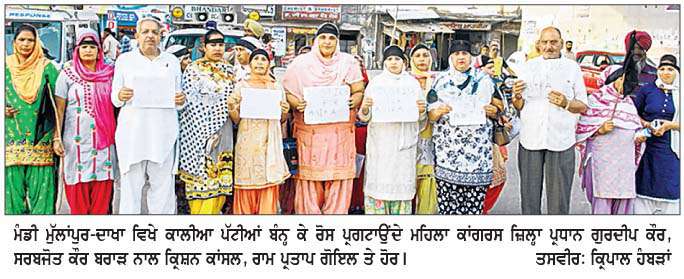 BHANDARI
ਮੰਡੀ ਮੁੱਲਾਂਪੁਰ-ਦਾਖਾ ਵਿਖੇ ਕਾਲੀਆ ਪੱਟੀਆਂ ਬੰਨ੍ਹ ਕੇ ਰੋਸ ਪ੍ਰਗਟਾਉਂਦੇ ਮਹਿਲਾ ਕਾਂਗਰਸ ਜ਼ਿਲ੍ਹਾ ਪ੍ਰਧਾਨ ਗੁਰਦੀਪ ਕੌਰ,
ਸਰਬਜੋਤ ਕੌਰ ਬਰਾੜ ਨਾਲ ਕ੍ਰਿਸ਼ਨ ਕਾਂਸਲ, ਰਾਮ ਪ੍ਰਤਾਪ ਗੋਇਲ ਤੇ ਹੋਰ। ਤਸਵੀਰ: ਕ੍ਰਿਪਾਲ ਹੰਬੜਾਂ